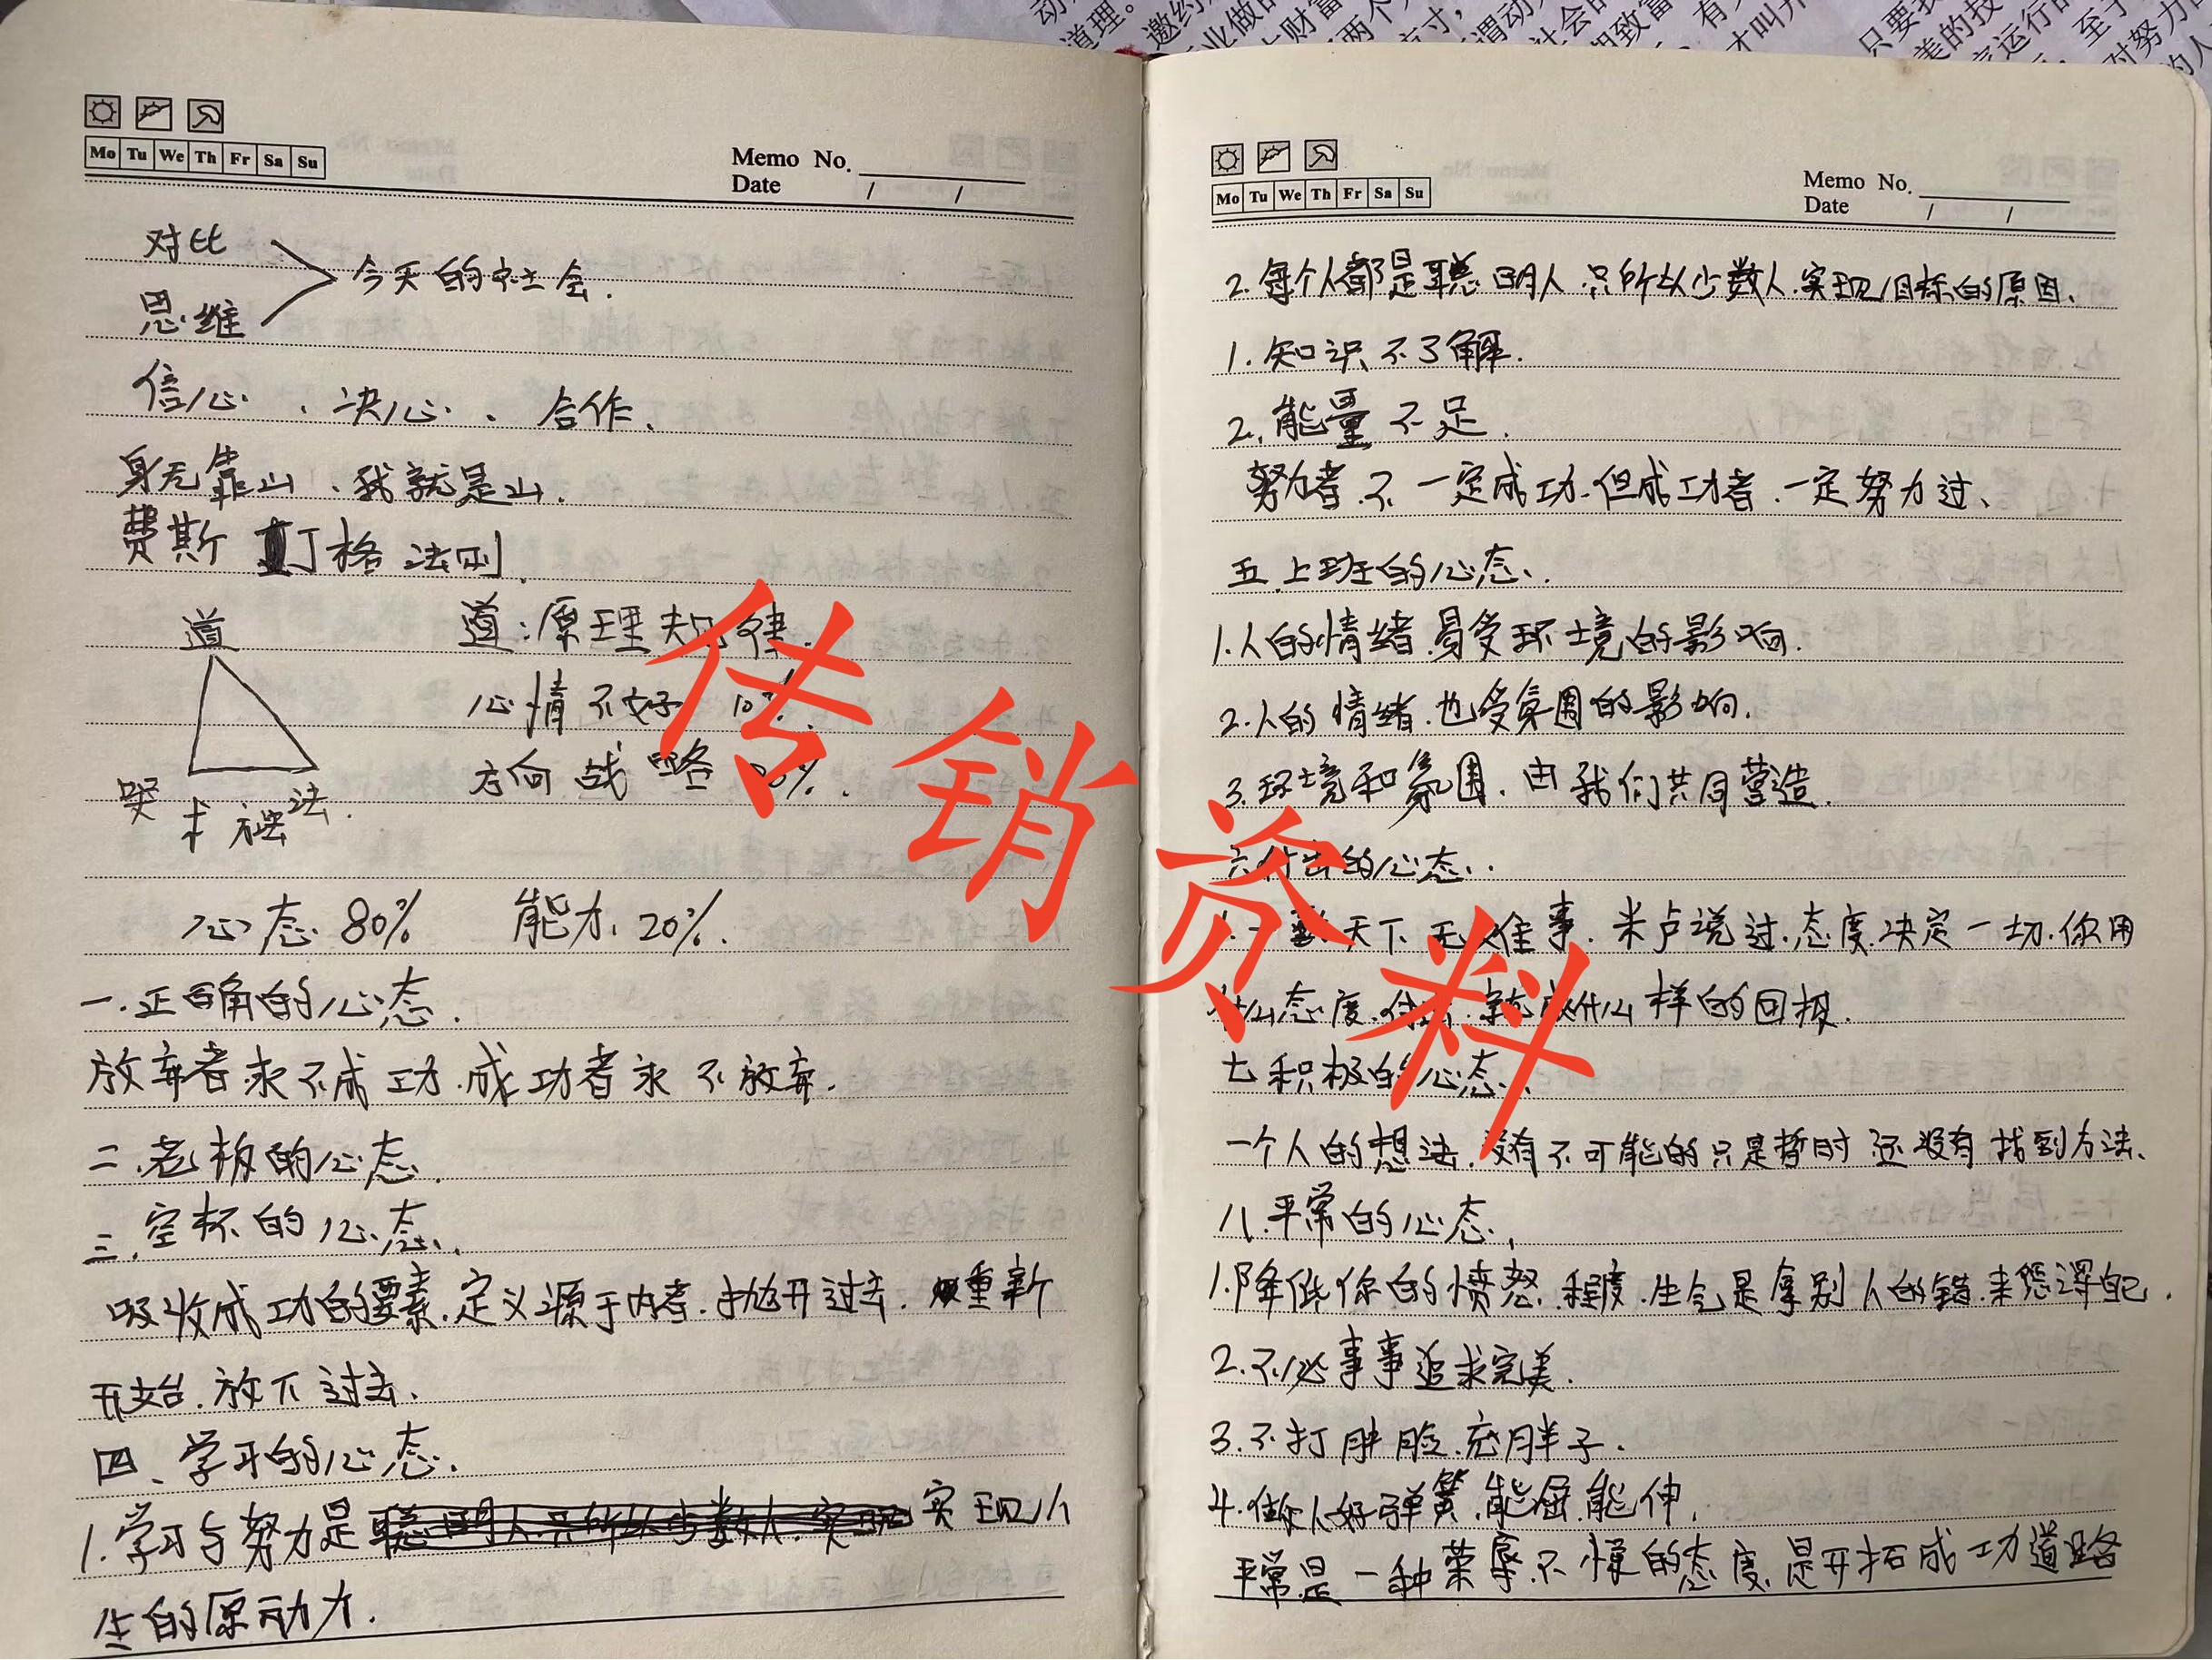 Mo Tu We Th Fr Sa Su
Memo No.
Date / /
对比
思维
今天的社会.
信心、决心、合作、
身无靠山、我就是山.
费斯丁格法则.
道
道:原理规律.
心情不好 10%.
方向战略
术 法.
心态 80% 能力 20%.
一.正确的心态.
放弃者永不成功.成功者永不放弃.
二.老板的心态.
三.空杯的心态.
吸收成功的要素.定义源于内者.抛开过去.重新
开始.放下过去.
四、学习的心态.
1.学习与努力是聪明人只所以少数人.实现实现人
生的原动力.
Mo Tu We Th Fr Sa Su
Memo No.
Date / /
2.每个人都是聪明人.只所以少数人.实现目标的原因.
1.知识不了解.
2.能量不足.
努力者.不一定成功.但成功者.一定努力过、
五.上班的心态.
1.人的情绪.易受环境的影响.
2.人的情绪.也受氛围的影响.
3.环境和氛围.由我们共同营造.
六.付出的心态.
天下无难事.米卢说过.态度决定一切.你用
什么态度.付出.就 什么样的回报.
七.积极的心态.
一个人的想法.没有不可能的只是暂时还没有找到方法、
八.平常的心态.
1.降低你的愤怒.程度.生气是拿别人的错.来惩罚自己.
2.不必事事追求完美.
3.不打肿脸充胖子.
4.做人好弹簧.能屈能伸.
平常是一种荣辱不惊的态度.是开拓成功道路
传销资料